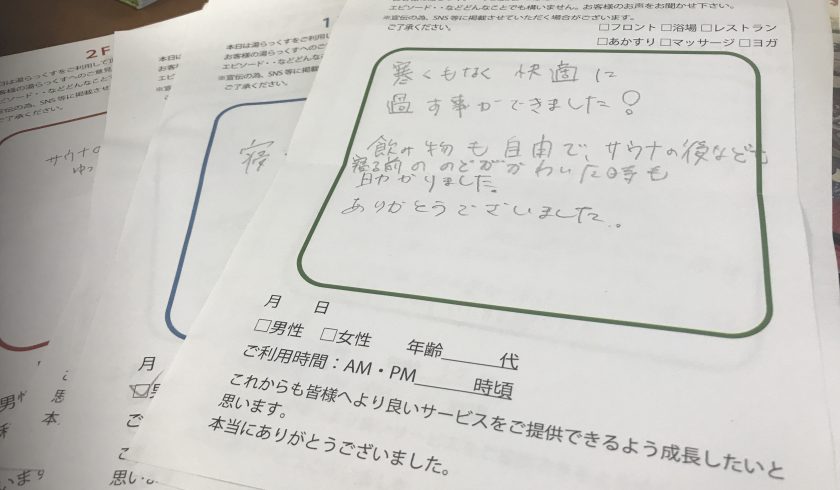 エピソード・・などどんなことでも構いません。お客様のお声をお聞かせ下さい。
※宣伝の為、SNS等に掲載させていただく場合がございます。
ご了承ください。
□フロント □浴場 □レストラン
□あかすり □マッサージ □ヨガ
寒くもなく 快適に
過す事ができました!
飲み物も自由で、サウナの後なども
寝る前ののどがかわいた時も
助かりました。
ありがとうございました。
月 日
□男性 □女性 年齢______代
ご利用時間：AM・PM______時頃
これからも皆様へより良いサービスをご提供できるよう成長したいと
思います。
本当にありがとうございました。
1
本日は湯らっくすをご利用し
お客様の湯らっくすへのご
エピソード・・などどんな
※宣伝の為、SNS等に掲
ご了承ください。
寝
月
ご
思い
本日
お客
エピ
※宣
2F
日は湯らっくすをご利用して
客様の湯らっくすへのご意見
ピソード・・などどんなこと
宣伝の為、SNS等に掲載させ
了承ください。
サウナの
ゆっ
男
思
本
います